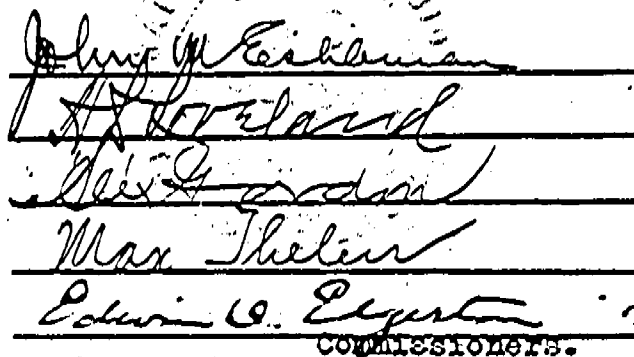 John M Eshleman
H D Loveland
Alex Gordon
Max Thelen
Edwin O. Edgerton
Commissioners.